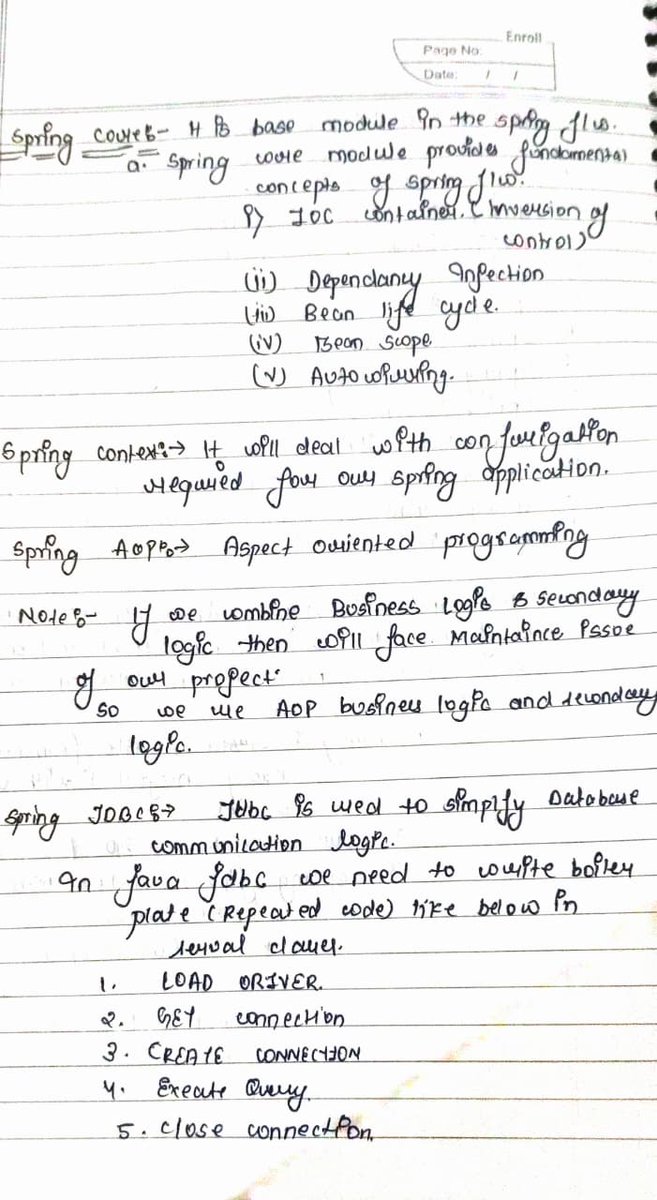 Enroll
Page No:
Date: / /
Spring Core:- It is base module in the spring f/w.
a. Spring core module provides fundamental
concepts of spring f/w.
i) IOC container. (Inversion of
control)
(ii) Dependancy Injection
(iii) Bean life cycle.
(iv) Bean scope
(v) Autowiring.
Spring context:→ It will deal with configuration
required for our spring application.
Spring AOP:→ Aspect oriented programming
Note:- If we combine Business Logic & secondary
logic then will face Maintaince issue
of our project.
So we use AOP business logic and secondary
logic.
Spring JDBC:→ Jdbc is used to simplify Database
communication logic.
In Java Jdbc we need to write boiler
plate (Repeated code) like below in
serval classes.
1. LOAD DRIVER.
2. GET connection
3. CREATE CONNECTION
4. Execute Query.
5. Close connection.